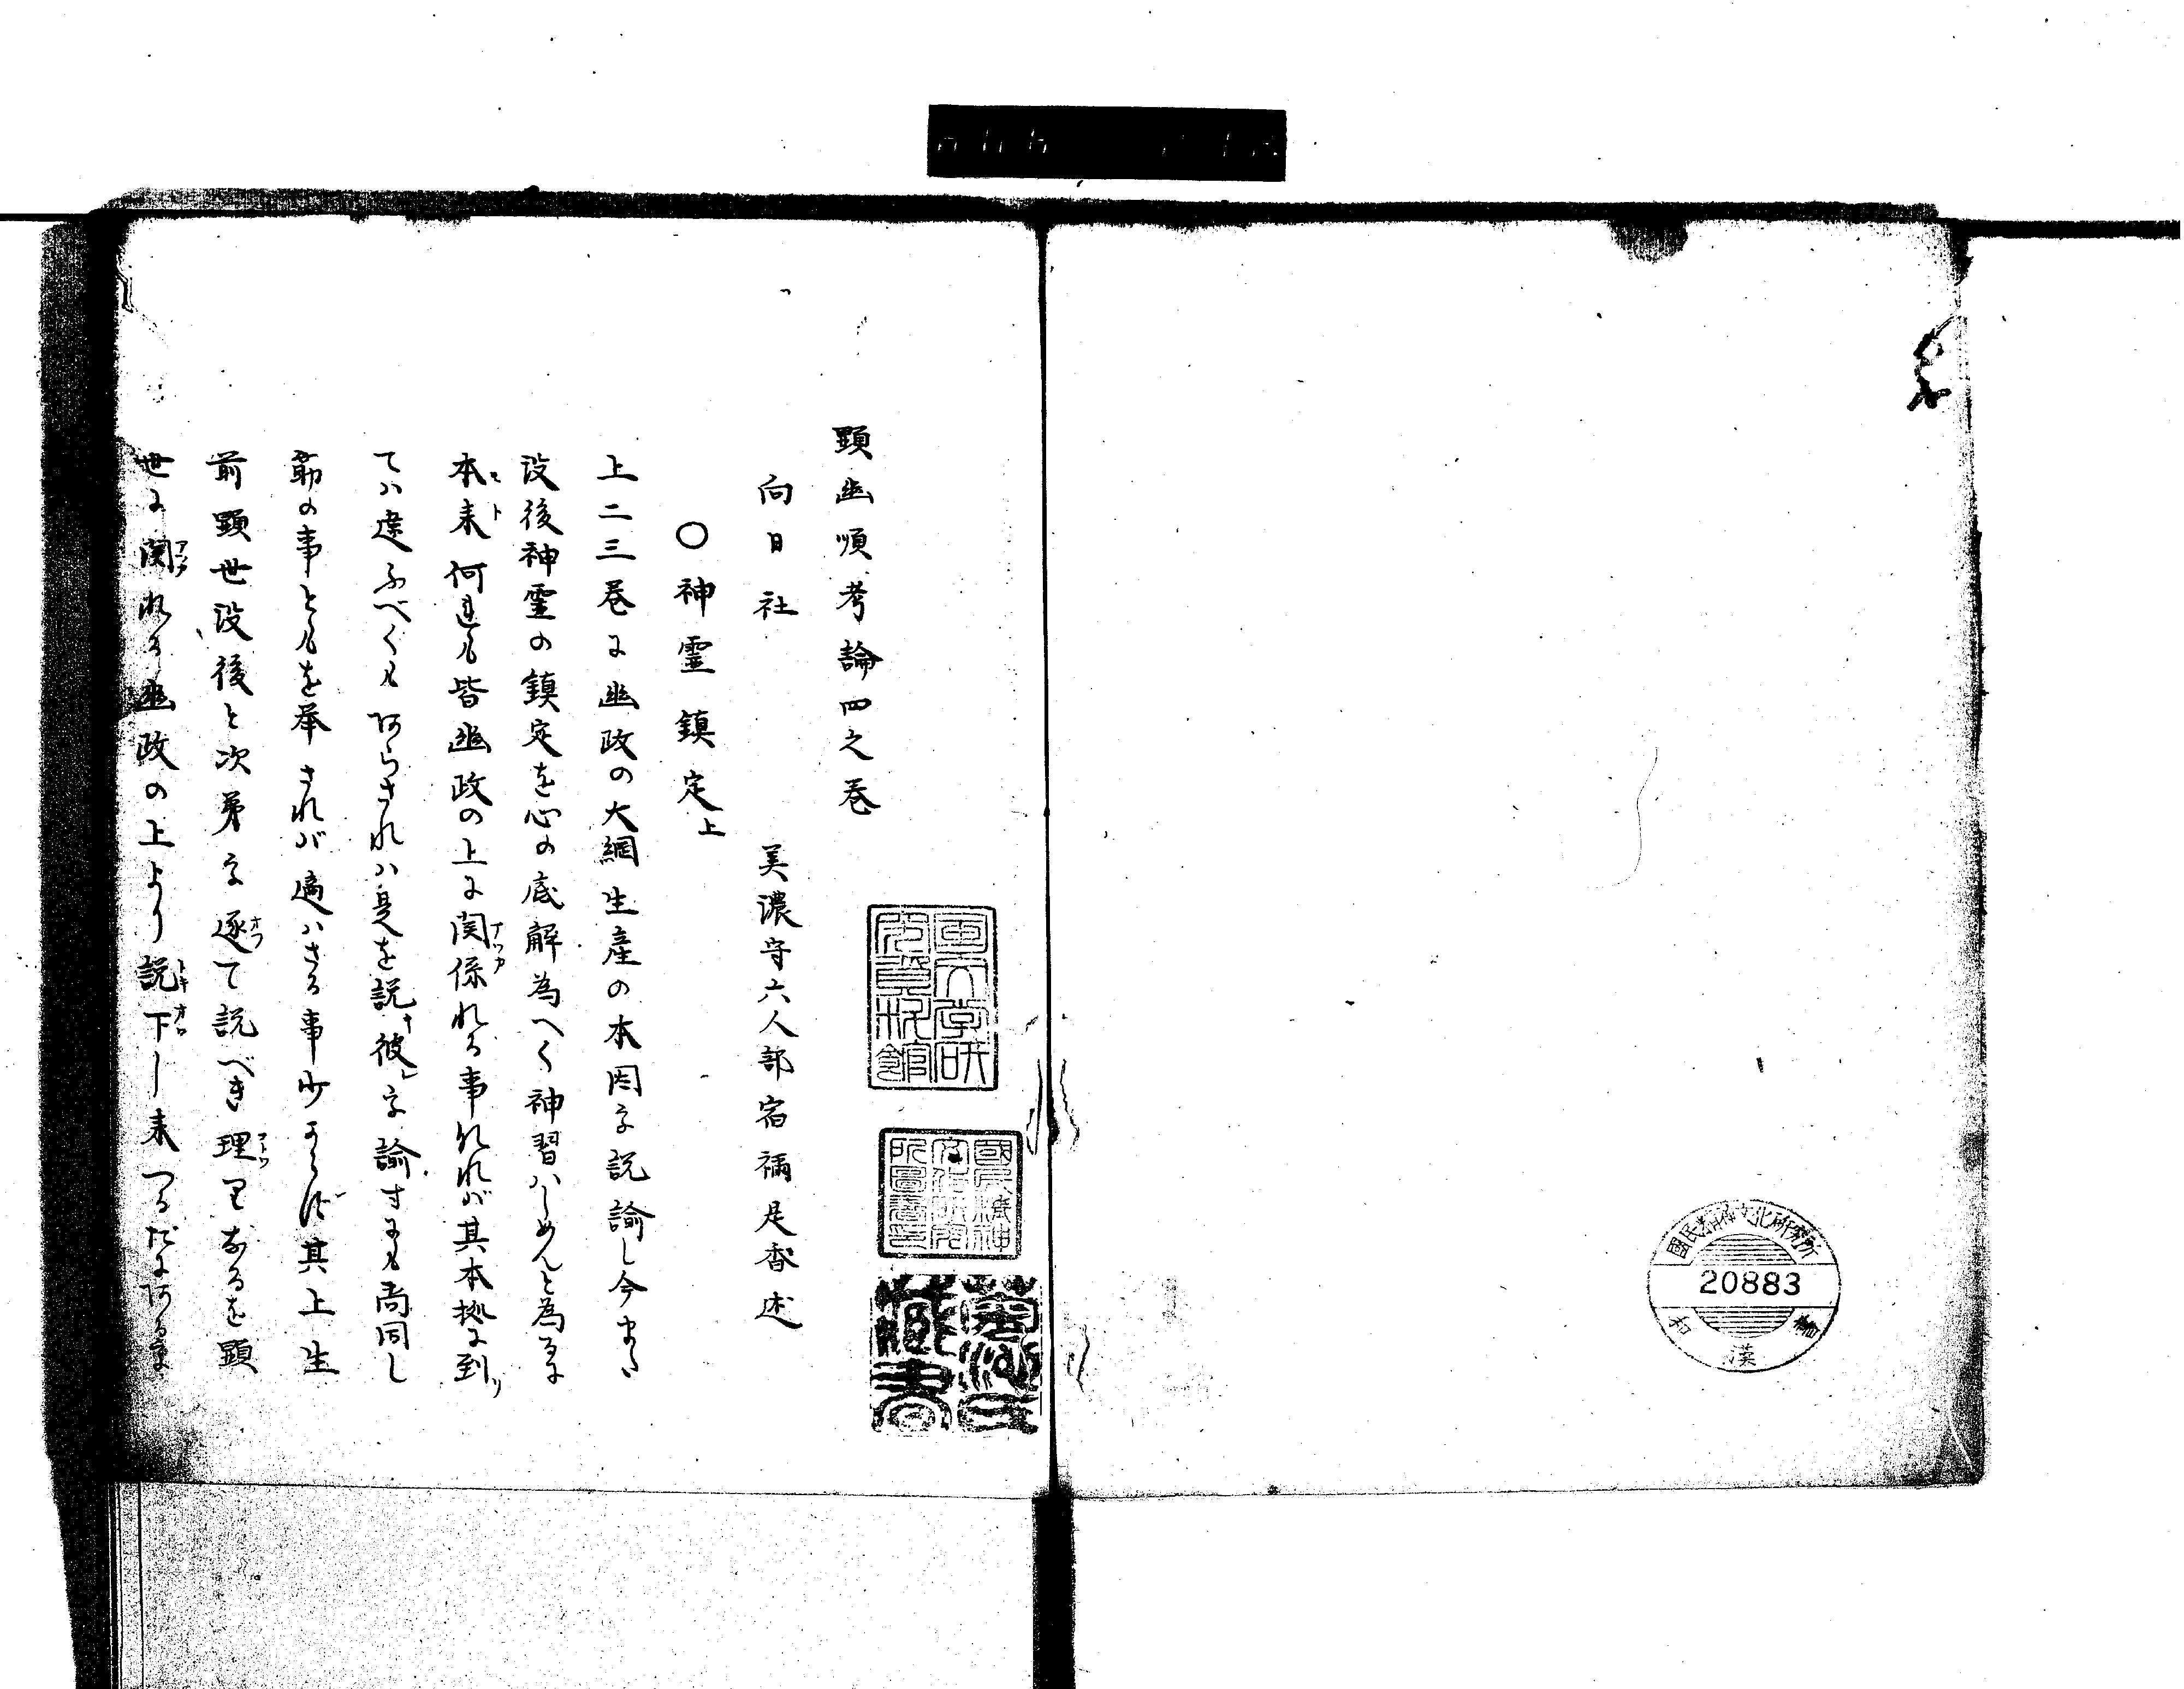 顕幽順考論四之巻
向日社 美濃守六人部宿祢是香述
〇神霊鎮定上
上二三巻に幽政の大綱生産の本因を説諭し今また
没後神霊の鎮定を心の底解為へく神習はしめんと為るに
本来何れも皆幽政の上に関係れる事なれば其本拠に到り
ては違ふべくもあらされは是を説き彼を諭すにも尚同し
筋の事ともを挙されば適はさる事少からず其上生
前顕世没後と次第を逐て説べき理りなるを顕
世に関れる幽政の上より説下し来つるだにあるを
國民精神文化研究所
20883
和漢書